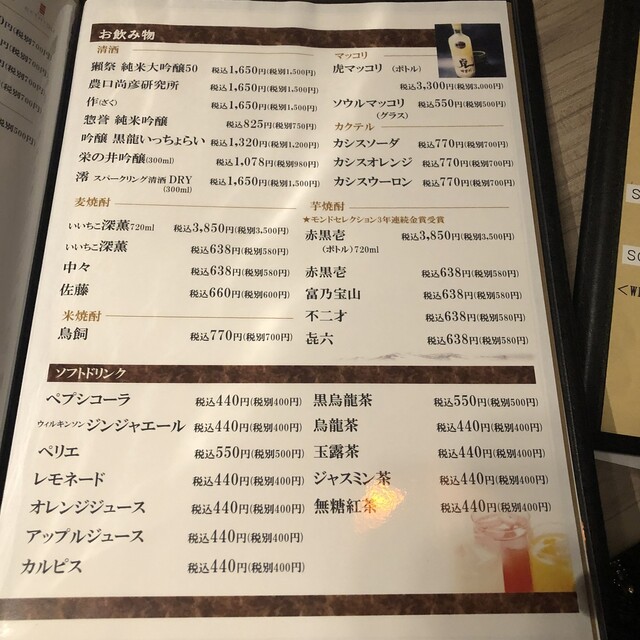 お飲み物
清酒
獺祭 純米大吟醸50 税込1,650円(税別1,500円)
農口尚彦研究所 税込1,650円(税別1,500円)
作(ざく) 税込1,650円(税別1,500円)
惣誉 純米吟醸 税込825円(税別750円)
吟醸 黒龍いっちょらい 税込1,320円(税別1,200円)
栄の井吟醸(300ml) 税込1,078円(税別980円)
澪 スパークリング清酒 DRY 税込1,650円(税別1,500円)
(300ml)
麦焼酎
いいちこ深薫720ml 税込3,850円(税別3,500円)
いいちこ深薫 税込638円(税別580円)
中々 税込638円(税別580円)
佐藤 税込660円(税別600円)
米焼酎
鳥飼 税込770円(税別700円)
マッコリ
虎マッコリ (ボトル)
税込3,300円(税別3,000円)
ソウルマッコリ 税込550円(税別500円)
(グラス)
カクテル
カシスソーダ 税込770円(税別700円)
カシスオレンジ 税込770円(税別700円)
カシスウーロン 税込770円(税別700円)
芋焼酎
★モンドセレクション3年連続金賞受賞
赤黒壱 税込3,850円(税別3,500円)
(ボトル)720ml
赤黒壱 税込638円(税別580円)
富乃宝山 税込638円(税別580円)
不二才 税込638円(税別580円)
㐂六 税込638円(税別580円)
ソフトドリンク
ペプシコーラ 税込440円(税別400円)
ウィルキンソンジンジャエール 税込440円(税別400円)
ペリエ 税込550円(税別500円)
レモネード 税込440円(税別400円)
オレンジジュース 税込440円(税別400円)
アップルジュース 税込440円(税別400円)
カルピス 税込440円(税別400円)
黒烏龍茶 税込550円(税別500円)
烏龍茶 税込440円(税別400円)
玉露茶 税込440円(税別400円)
ジャスミン茶 税込440円(税別400円)
無糖紅茶 税込440円(税別400円)